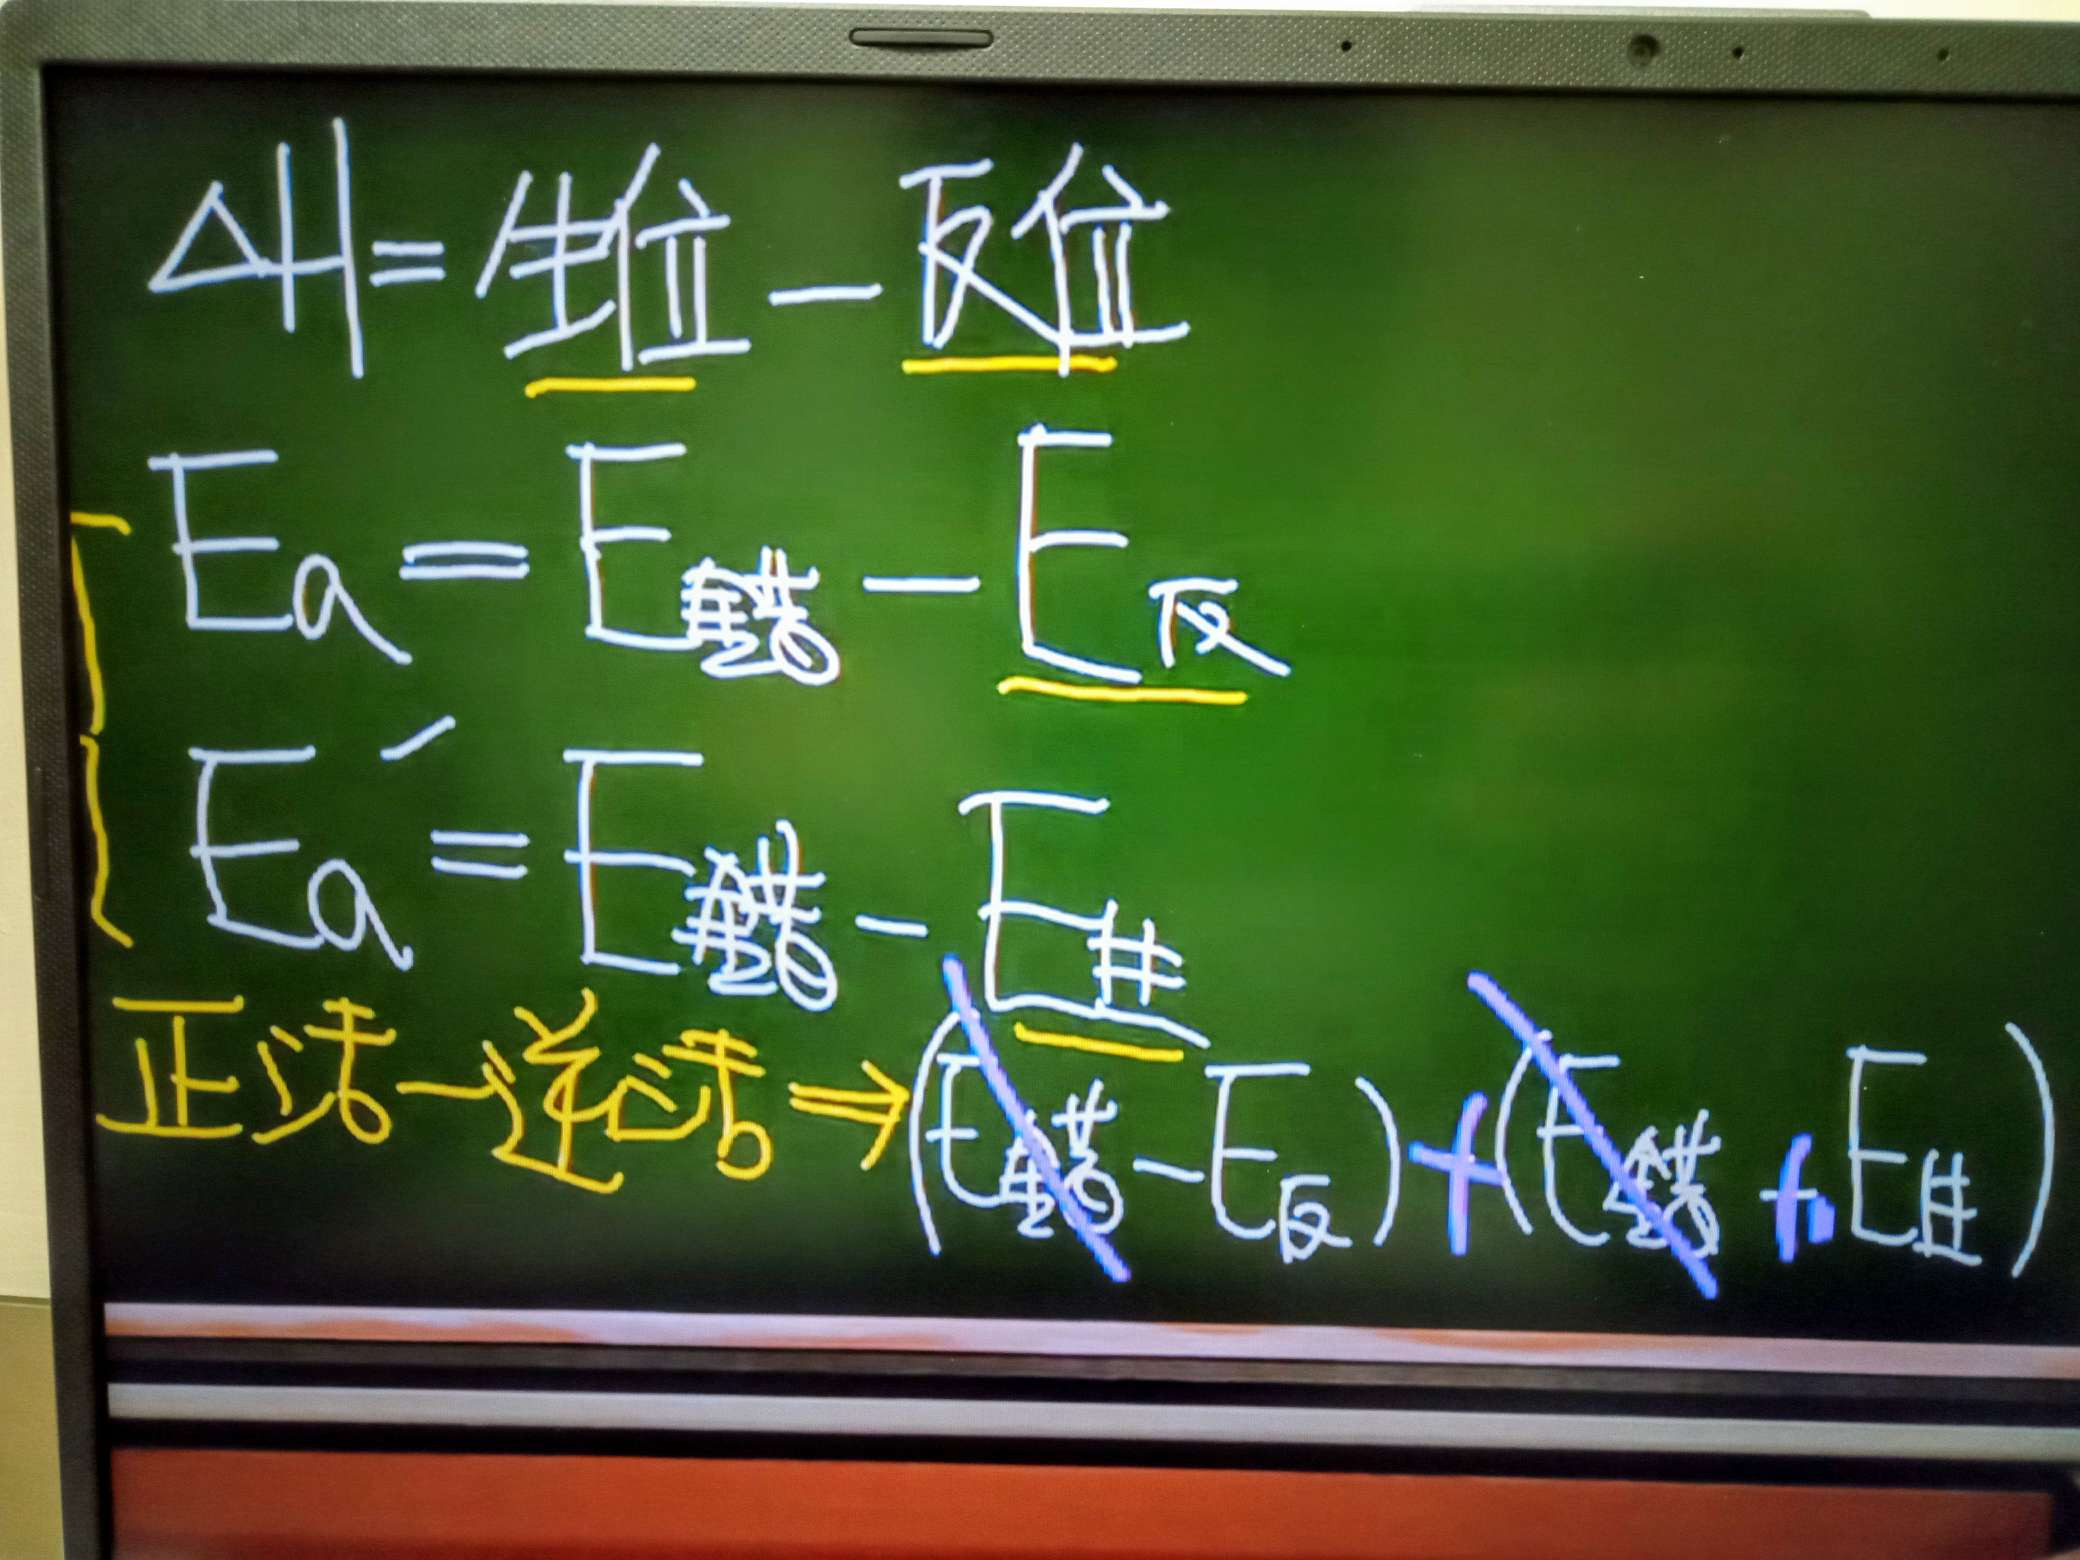 ΔH = 生位 − 反位
Ea = E錯 − E反
Ea′ = E錯 − E生
正活 − 逆活 ⇒ (E錯 − E反) + (E錯 + E生)